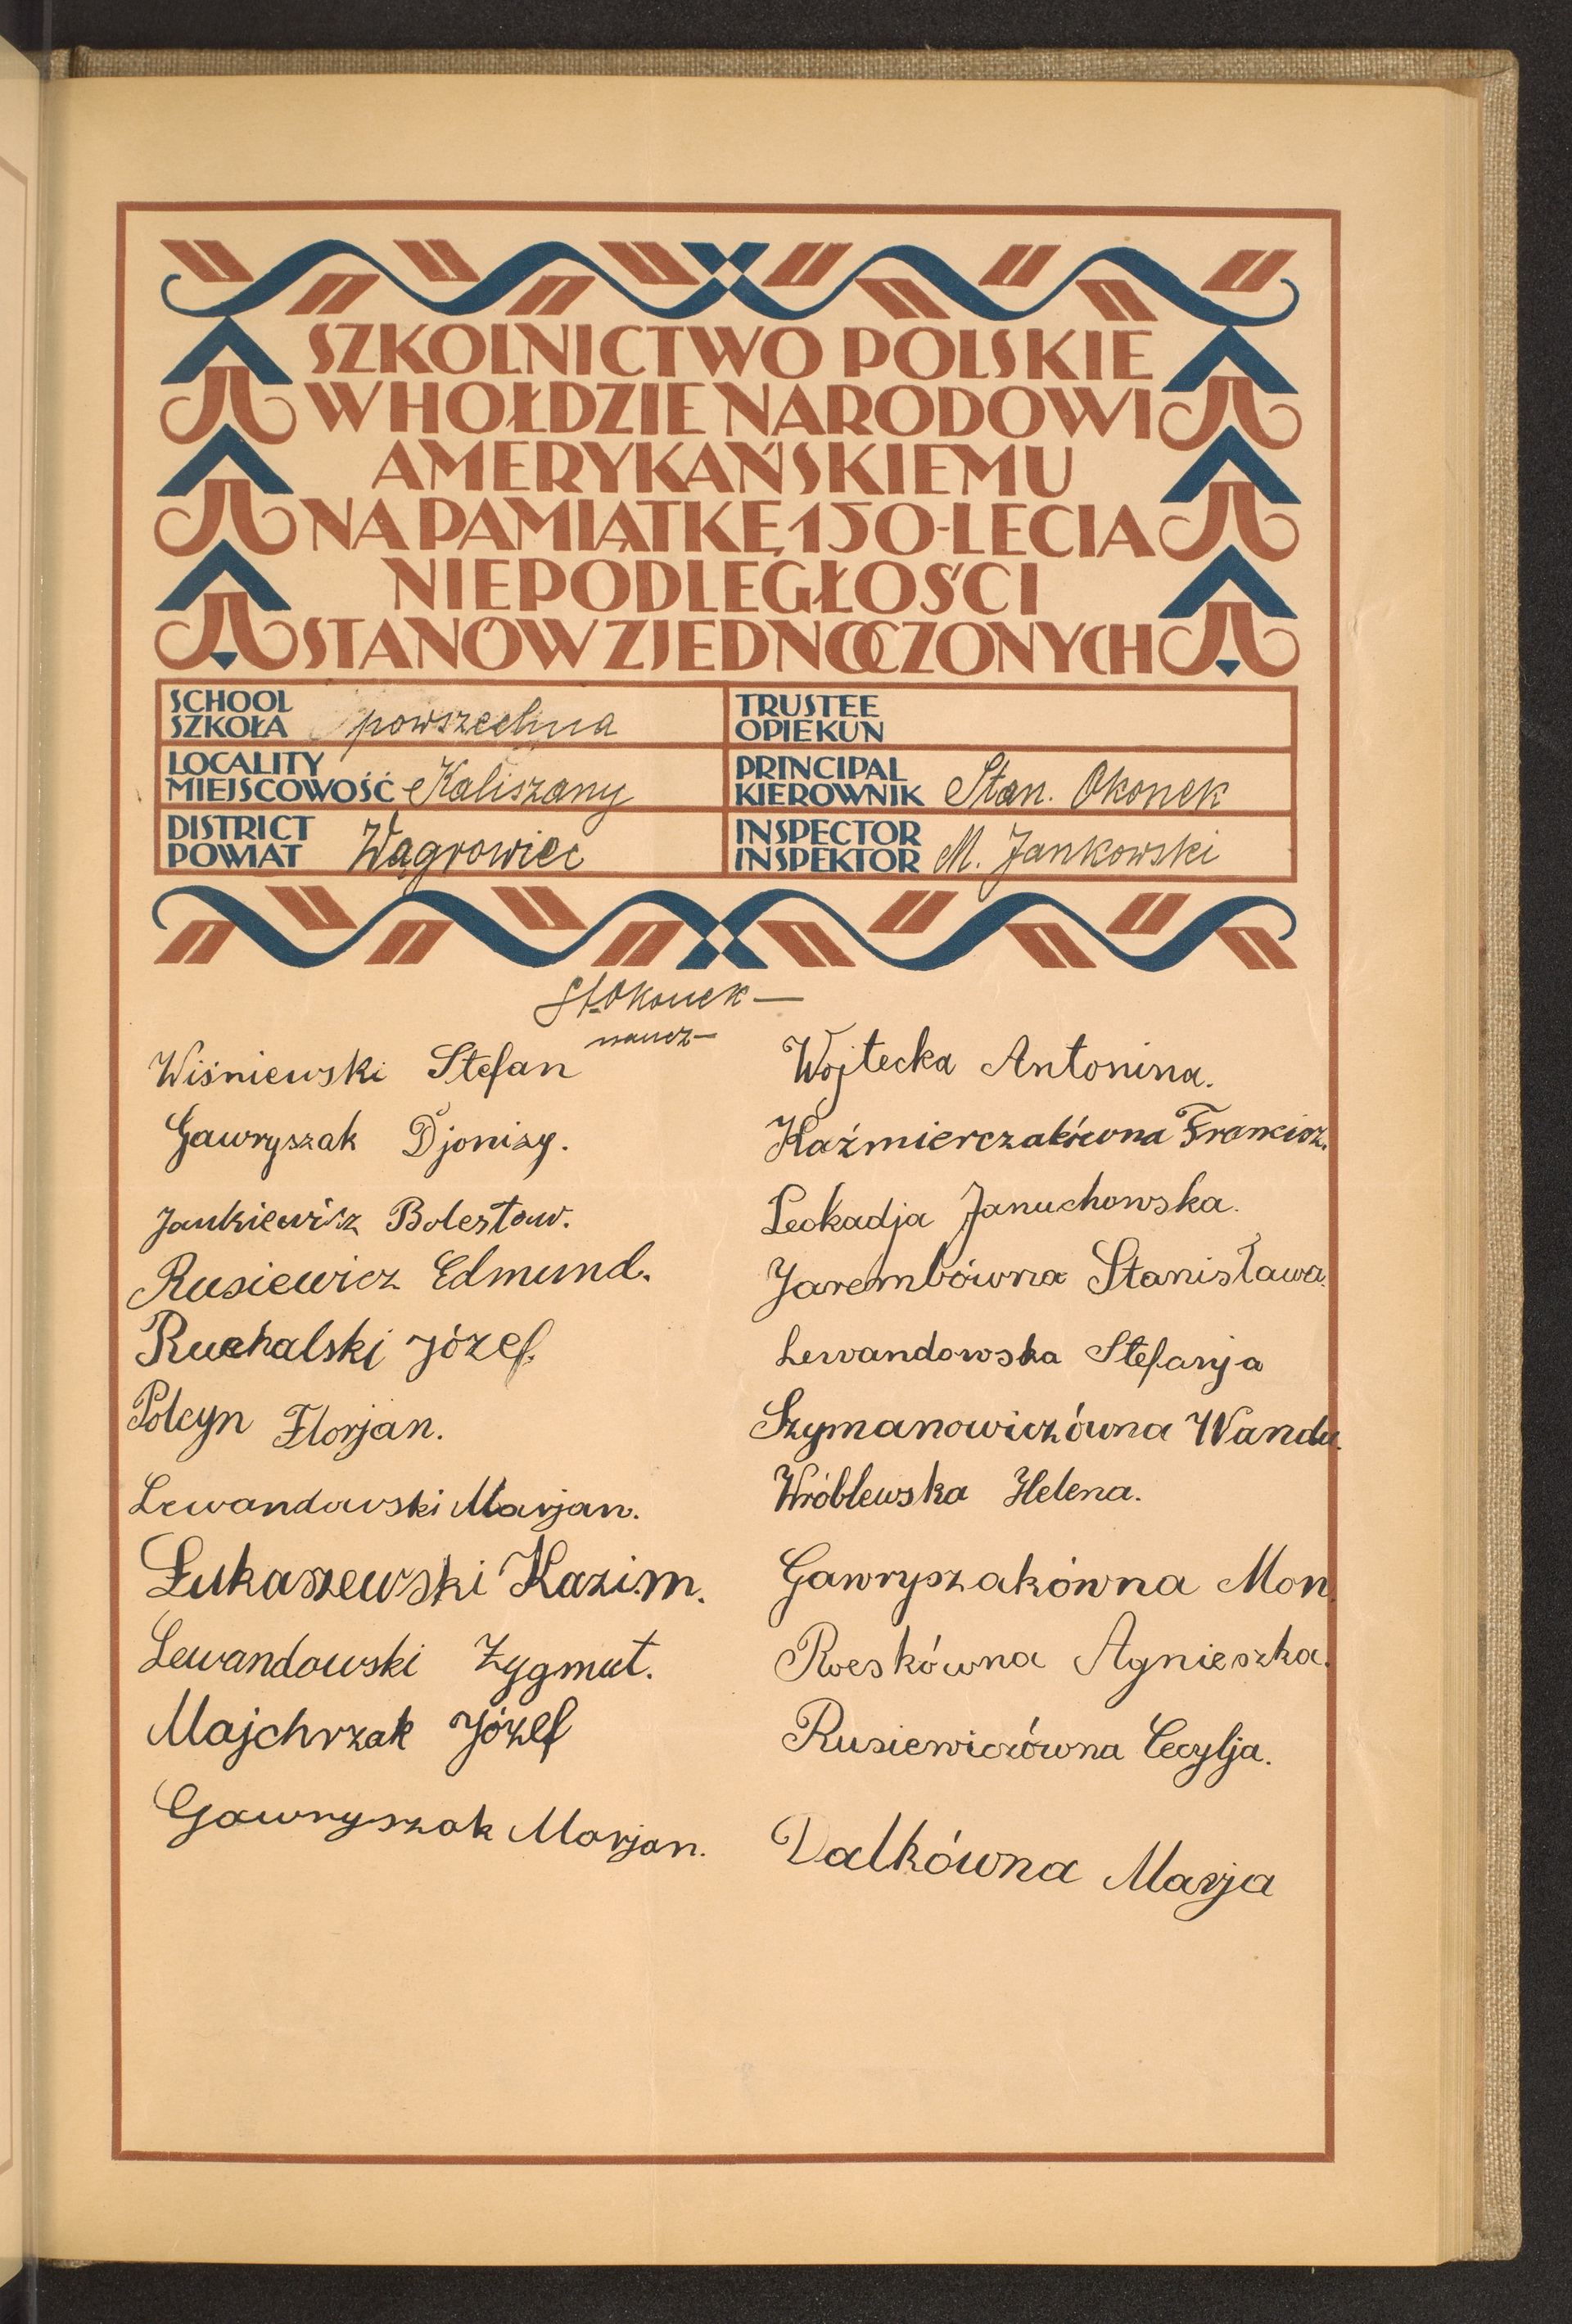 SZKOLNICTWO POLSKIE
W HOŁDZIE NARODOWI
AMERYKAŃSKIEMU
NA PAMIĄTKĘ 150-LECIA
NIEPODLEGŁOŚCI
STANÓW ZJEDNOCZONYCH
SCHOOL
SZKOŁA powszechna
TRUSTEE
OPIEKUN
LOCALITY
MIEJSCOWOŚĆ Kaliszany
PRINCIPAL
KIEROWNIK Stan. Okonek
DISTRICT
POWIAT Wągrowiec
INSPECTOR
INSPEKTOR M. Jankowski
St. Okonek
naucz
Wiśniewski Stefan
Gawryszak Djonizy.
Jankiewicz Bolesław.
Rusiewicz Edmund.
Ruchalski Józef.
Polcyn Florjan.
Lewandowski Marjan.
Łukaszewski Kazim.
Lewandowski Zygmut.
Majchrzak Józef
Gawryszak Marjan.
Wojtecka Antonina.
Kaźmierczakówna Francisz.
Leokadja Januchowska.
Jarembówna Stanisława.
Lewandowska Stefanja
Szymanowiczówna Wanda.
Wróblewska Helena.
Gawryszakówna Mon.
Roeskówna Agnieszka.
Rusiewiczówna Cecylja.
Valkówna Marja